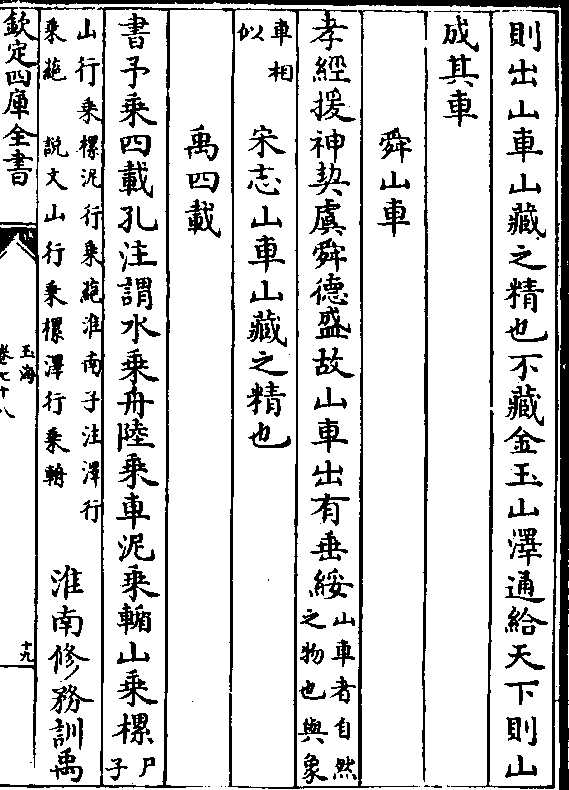 則出山車山藏之精也不藏金玉山澤通給天下則山
成其車
舜山車
孝經援神契虞舜德盛故山車出有垂綏山車者自然之物也與象
車相似　宋志山車山藏之精也
禹四載
書予乘四載孔注謂水乘舟陸乘車泥乘輴山乘樏尸子
山行乘樏泥行乘蕝淮南子注澤行乘蕝　說文山行乘樏澤行乘輴　淮南修務訓禹
欽定四庫全書
玉海
卷七十八
十九